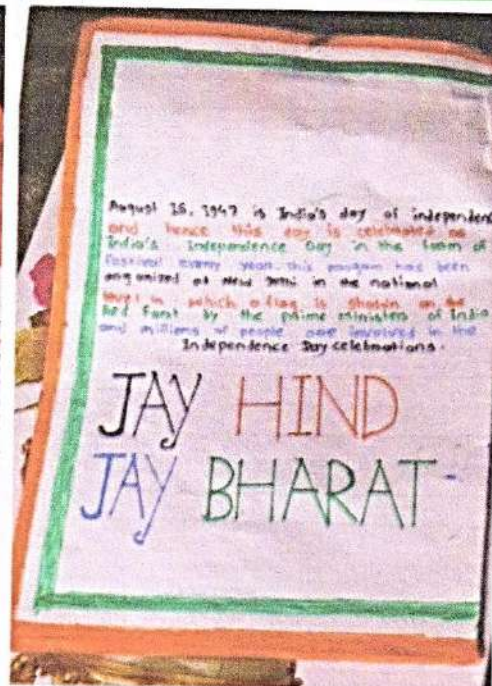 August 15, 1947 is India's day of independenc
and hence this day is celebrated as
India's Independence Day in the form of
festival every year. this program has been
organized at New Delhi in the national
level in which a flag is shown on the
Red Fort by the prime ministers of India
and millions of people are involved in the
Independence Day celebrations.
JAY HIND
JAY BHARAT